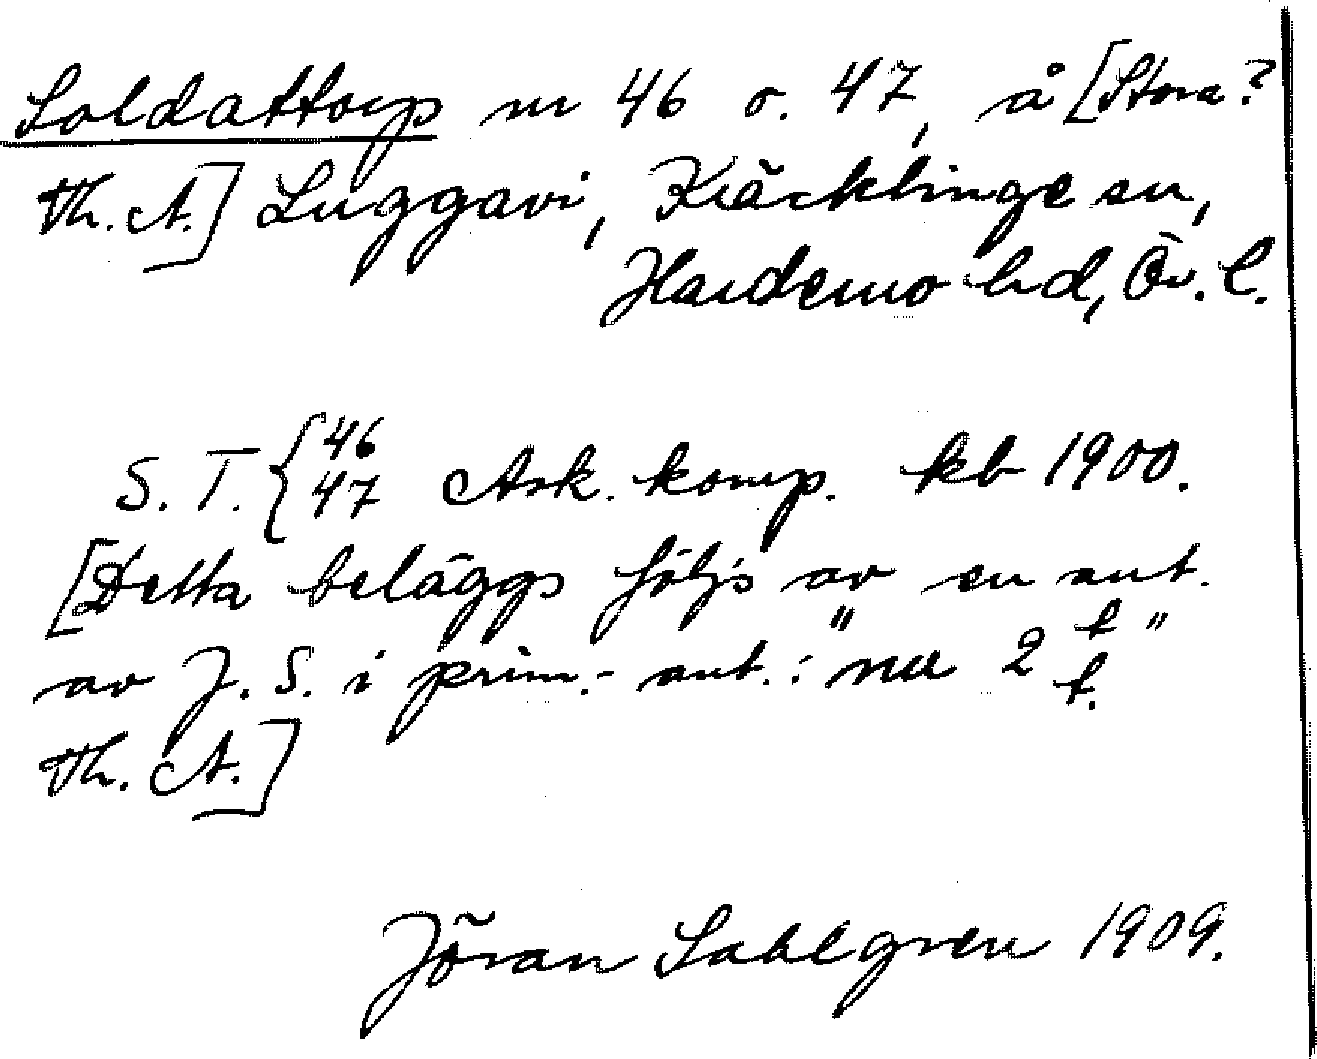 Soldattorp nr 46 o. 47, å [Stora?
Th. A.] Luggavi, Kräcklinge sn,
Hardemo hd, Ör. l.
S. T. { 46 47 Ask. komp. kb 1900.
[Detta beläggs följs av en ant.
av J. S. i prim.- ant.: "nu 2 t t."
Th. A.]
Jöran Sahlgren 1909.